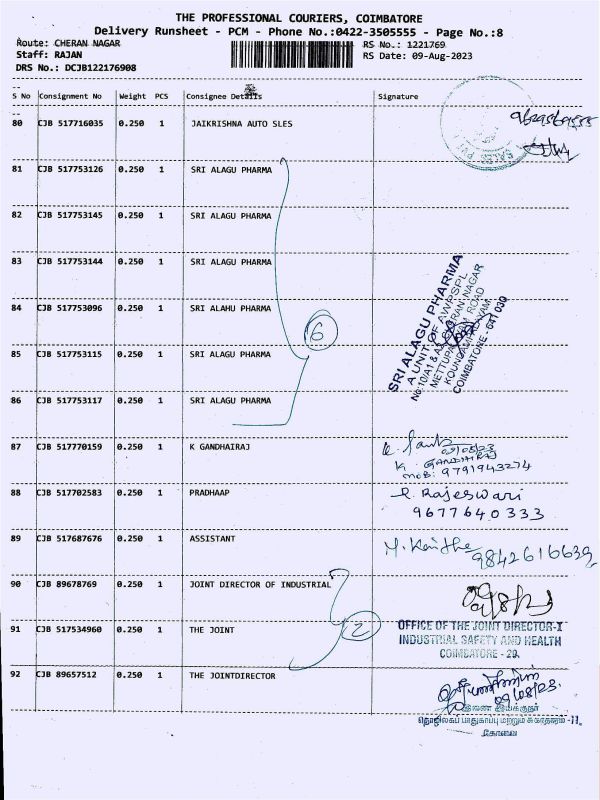 THE PROFESSIONAL COURIERS, COIMBATORE
Delivery Runsheet - PCM - Phone No.:0422-3505555 - Page No.:8
Route: CHERAN NAGAR RS No.: 1221769
Staff: RAJAN RS Date: 09-Aug-2023
DRS No.: DCJB122176908
S No Consignment No Weight PCS Consignee Details Signature
80 CJB 517716035 0.250 1 JAIKRISHNA AUTO SLES
81 CJB 517753126 0.250 1 SRI ALAGU PHARMA
82 CJB 517753145 0.250 1 SRI ALAGU PHARMA
83 CJB 517753144 0.250 1 SRI ALAGU PHARMA
84 CJB 517753096 0.250 1 SRI ALAHU PHARMA
6
85 CJB 517753115 0.250 1 SRI ALAGU PHARMA
86 CJB 517753117 0.250 1 SRI ALAGU PHARMA
SRI ALAGU PHARMA
A UNIT OF AWPSPL
METTUPALAYAM ROAD
COIMBATORE - 641 030
87 CJB 517770159 0.250 1 K GANDHAIRAJ
K. GANDHAIRAJ
MOB: 9791943274
88 CJB 517702583 0.250 1 PRADHAAP R. Rajeswari
9677640333
89 CJB 517687676 0.250 1 ASSISTANT 9842616639
90 CJB 89678769 0.250 1 JOINT DIRECTOR OF INDUSTRIAL
91 CJB 517534960 0.250 1 THE JOINT 2
OFFICE OF THE JOINT DIRECTOR-I
INDUSTRIAL SAFETY AND HEALTH
COIMBATORE - 29.
92 CJB 89657512 0.250 1 THE JOINTDIRECTOR
09/08/23.
இணை இயக்குநர்
தொழிலகப் பாதுகாப்பு மற்றும் சுகாதாரம் -II,
கோவை